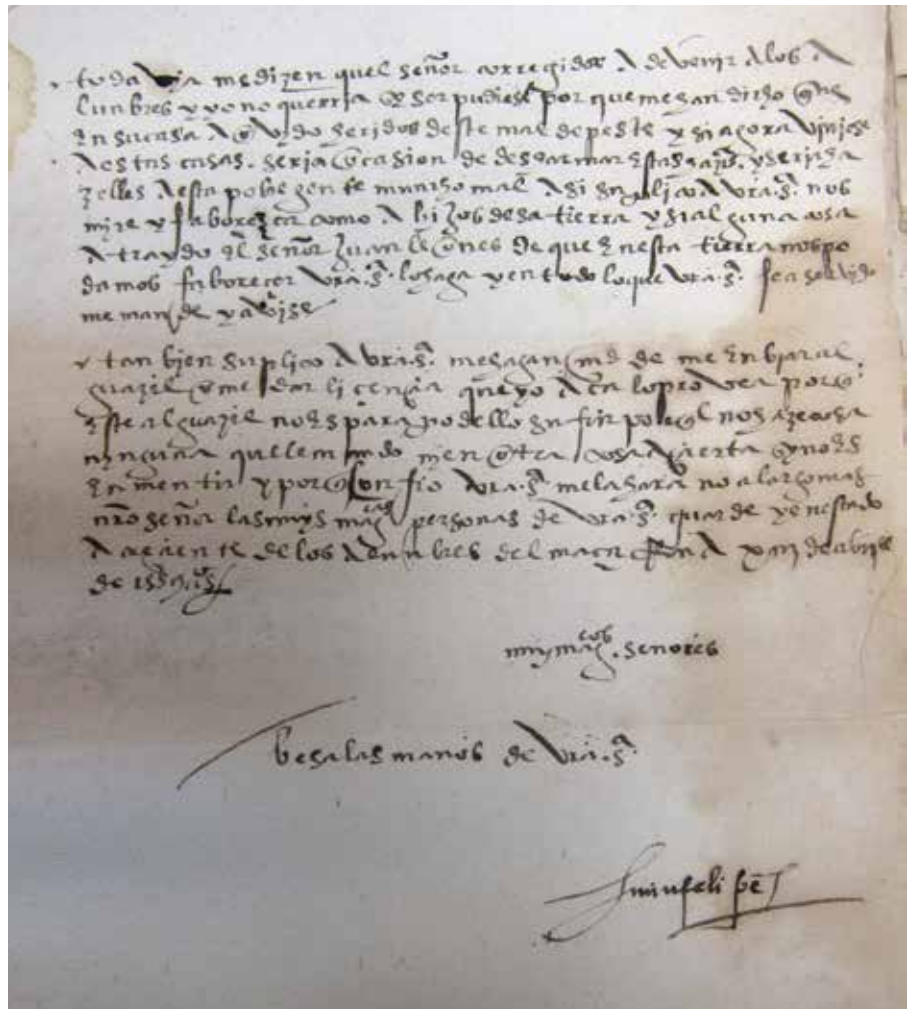 toda vya me dizen quel señor corregidor A de venir A los A
lunbres y yo no querria sy ser pudiese por que me han dicho que
En su casa A avydo heridos deste mal de peste y si agora viniese
A estas casas. seria ocasion de desarmar Estas y seria ha
zelles A esta pobre gente mucho mal Asi suplico A vras. sª. nos
mire y faborezca como A hijos desa tierra y si alguna cosa
A traydo El señor Juan de que En esta tierra nos po
damos faborecer vra. sª. lo haga y en todo lo que vra. sª. sea servido
me mande y avise
tan bien suplico A vra. sª. me hagan md de me Enbiar al
guazil o me dar licencia que yo Aca lo provea porq
Este alguazil no Es para podello sufrir porql no haze cosa
ninguna quel mando ni en otra cosa Acierta sy no Es
En mentir y porq confio vra. sª. me la hara no alargo mas
nro señor las muy magcas personas de vra. sª. guarde y en estado
Acreciente de los Alunbres del maçarron A xiii de abrill
de 1559 aºs
muy magcos. señores
besa las manos de vra. sª.